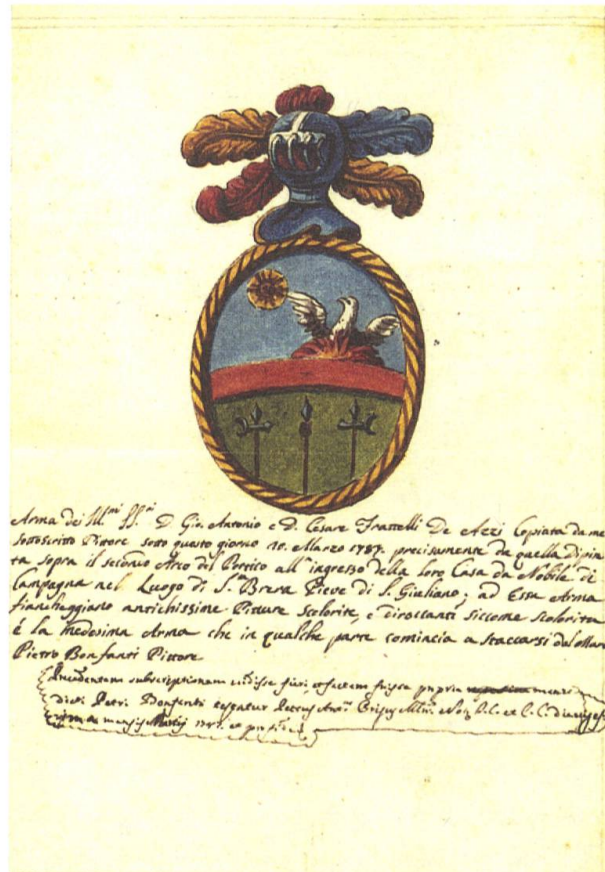 Arma dei Ill.mi SS.ri D. Gio. Antonio e D. Cesare Frattelli De Azzi Copiata da me
sottoscritto Pittore sotto questo giorno 10. Marzo 1787. precisamente da quella Dipin
ta sopra il secondo Arco del Portico all'ingresso della loro Casa da Nobile di
Campagna nel Luogo di S.ta Brera Pieve di S. Giuliano; ad Essa Arma
fiancheggiano antichissime Pitture Scolorite, e diroccanti siccome scolorita
é la medesima Arma che in qualche parte comincia a staccarsi dal Muro
Pietro Bonfanti Pittore
subscriptionem vidisse fieri, et factam fuisse propria manu
dicti Petri Bonfanti testatur Petrus Ant.s
mensis Martij